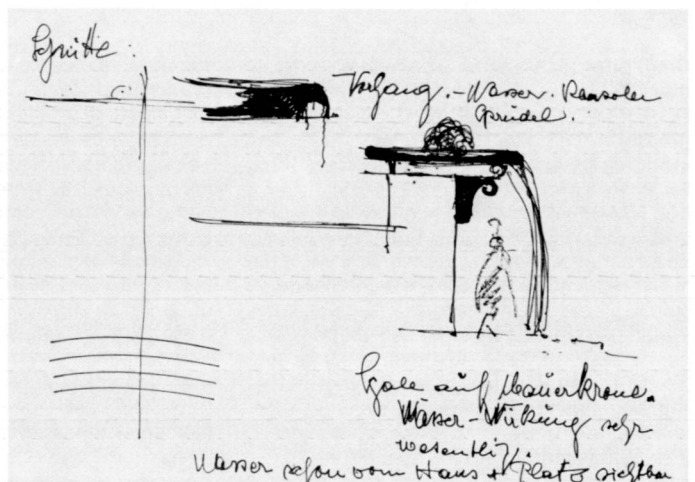 Schnitte:
Vorhang.-Wasser. Konsolen
Sprudel.
auf Mauerkrone.
Wasser-Wirkung sehr
wesentlich.
Wasser schon vom Haus + Platz sichtbar